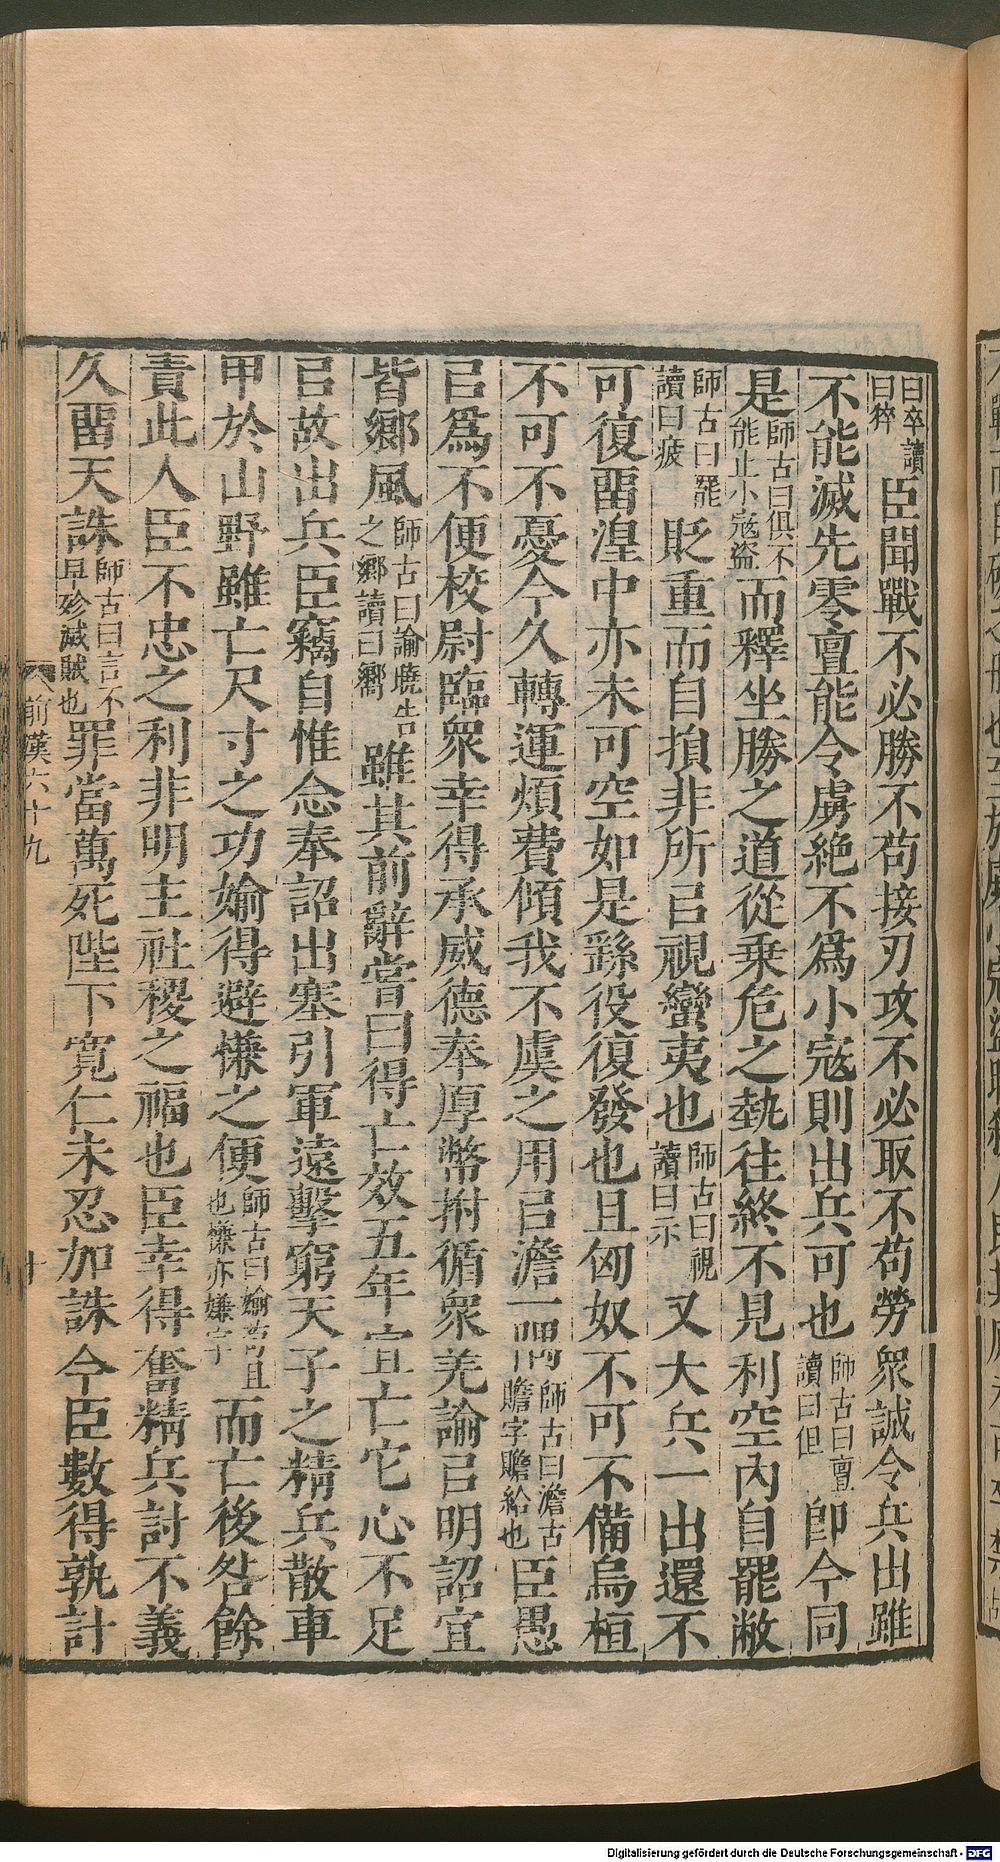 曰卒讀曰猝臣聞戰不必勝不苟接刃攻不必取不苟勞衆誠令兵出雖
不能滅先零亶能令虜絶不爲小寇則出兵可也師古曰亶讀曰但即今同
是師古曰俱不能止小寇盜而釋坐勝之道從乗危之埶往終不見利空內自罷敝
師古曰罷讀曰疲貶重而自損非所㠯視蠻夷也師古曰視讀曰示又大兵一出還不
可復畱湟中亦未可空如是繇役復發也且匈奴不可不備烏桓
不可不憂今久轉運煩費傾我不虞之用㠯澹一隅師古曰澹古贍字贍給也臣愚
㠯爲不便校尉臨衆幸得承威德奉厚幣拊循衆羌諭㠯明詔宜
皆鄉風師古曰諭曉告之鄉讀曰嚮雖其前辭嘗曰得亡效五年宜亡它心不足
㠯故出兵臣竊自惟念奉詔出塞引軍遠擊窮天子之精兵散車
甲於山野雖亡尺寸之功媮得避慊之便師古曰媮苟且也慊亦嫌字而亡後咎餘
責此人臣不忠之利非明主社稷之福也臣幸得奮精兵討不義
久畱天誅師古曰言不早殄滅賊也罪當萬死陛下寛仁未忍加誅今臣數得孰計
前漢六十九
十
Digitalisierung gefördert durch die Deutsche Forschungsgemeinschaft - DFG